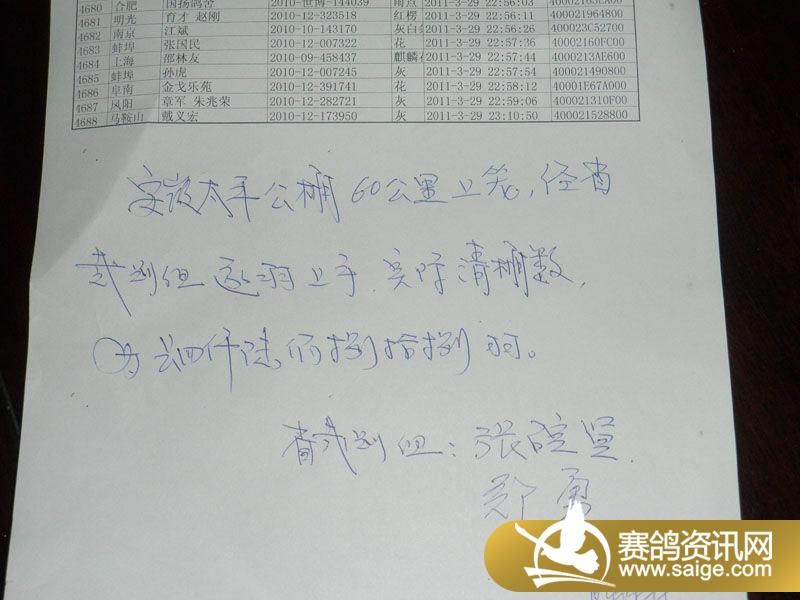 4680 合肥 国扬鸽舍 2010-世博-144039 雨点 2011-3-29 22:56:03
4681 明光 育才 赵刚 2010-12-323518 红楞 2011-3-29 22:56:11 400021964800
4682 南京 江斌 2010-10-143170 灰白 2011-3-29 22:56:26 400023C52700
4683 蚌埠 张国民 2010-12-007322 花 2011-3-29 22:57:36 40002160FC00
4684 上海 邵林友 2010-09-458437 麒麟 2011-3-29 22:57:44 400213AE600
4685 蚌埠 孙虎 2010-12-007245 灰 2011-3-29 22:57:54 400021490800
4686 阜南 金戈乐苑 2010-12-391741 花 2011-3-29 22:58:12 40001E67A000
4687 凤阳 章军 朱兆荣 2010-12-282721 灰 2011-3-29 22:59:06 400021310F00
4688 马鞍山 戴义宏 2010-12-173950 灰 2011-3-29 23:10:50 400021528800
安徽太平公棚60公里上笼,经省
裁判组逐羽上手.实际清棚数,
为 肆仟陆佰捌拾捌羽。
省裁判组:张
郑勇
赛鸽资讯网
www.saige.com